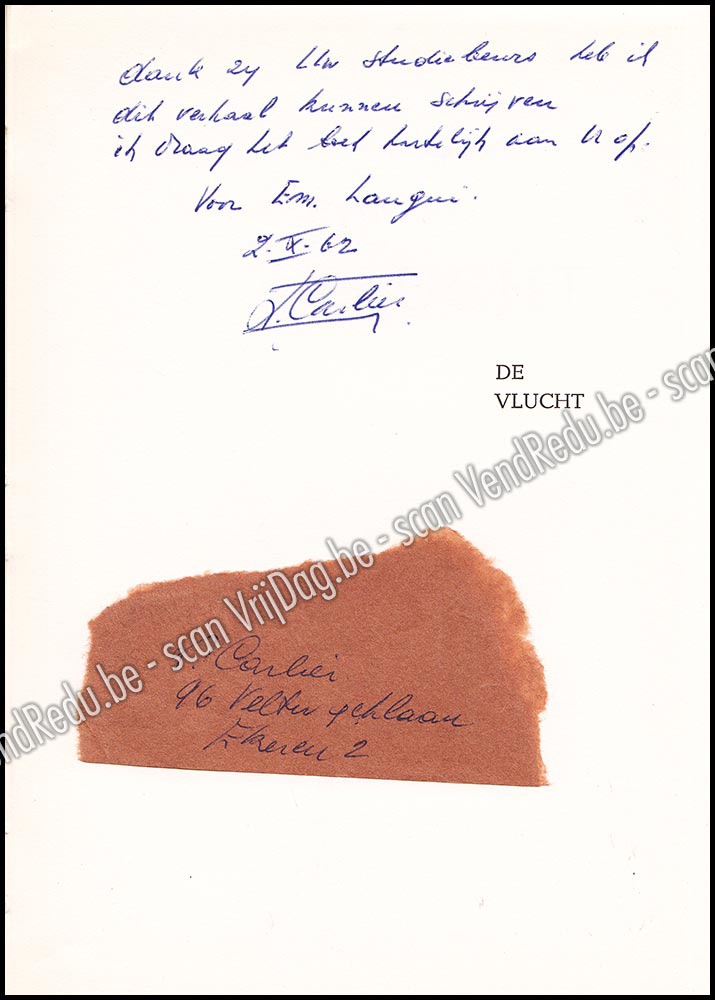 dank zij Uw studiebeurs heb ik
dit verhaal kunnen schrijven
ik draag het heel hartelijk aan U op.
Voor Em. Langui.
2.X.62
L. Carlier
DE
VLUCHT
VendRedu.be - scan VrijDag.be - scan VendRedu.be - scan
Carlier
96
Ekeren 2